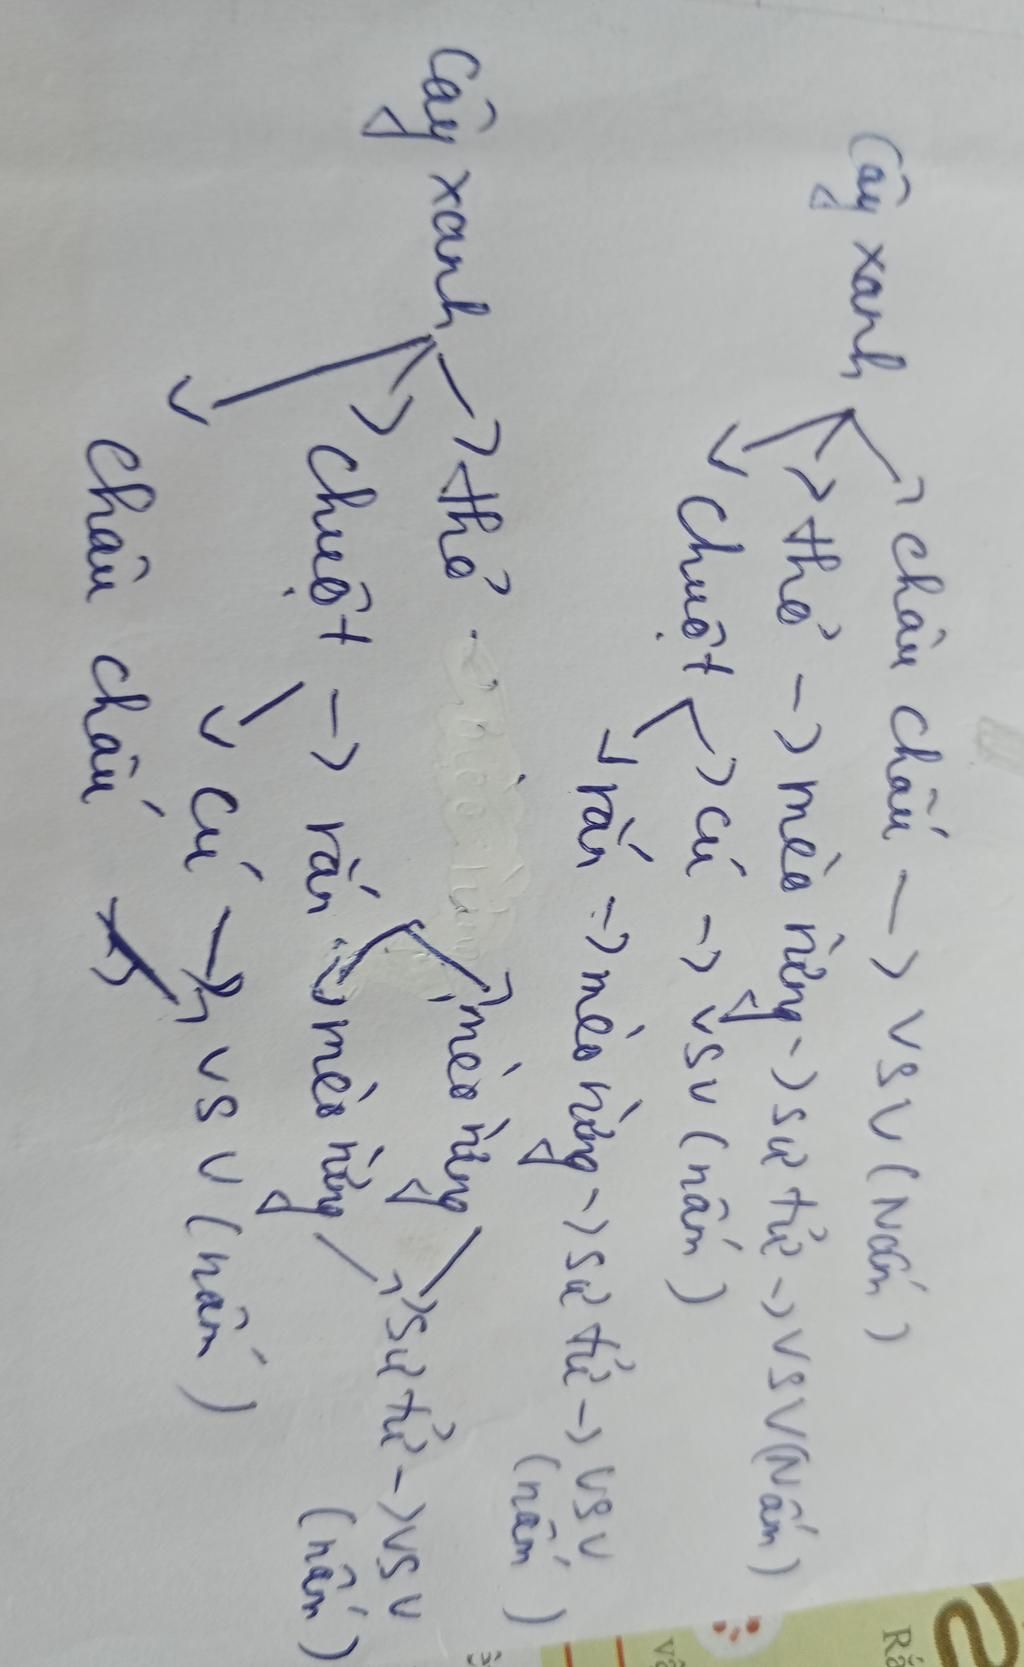 châu chấu → VSV (Nấm)
Cây xanh → thỏ → mèo rừng → sư tử → VSV (Nấm)
chuột → cú → VSV (nấm)
rắn → mèo rừng → sư tử → VSV (nấm)
Cây xanh → thỏ mèo rừng
chuột → rắn → mèo rừng → sư tử → VSV (nấm)
cú → VSV (nấm)
châu chấu →